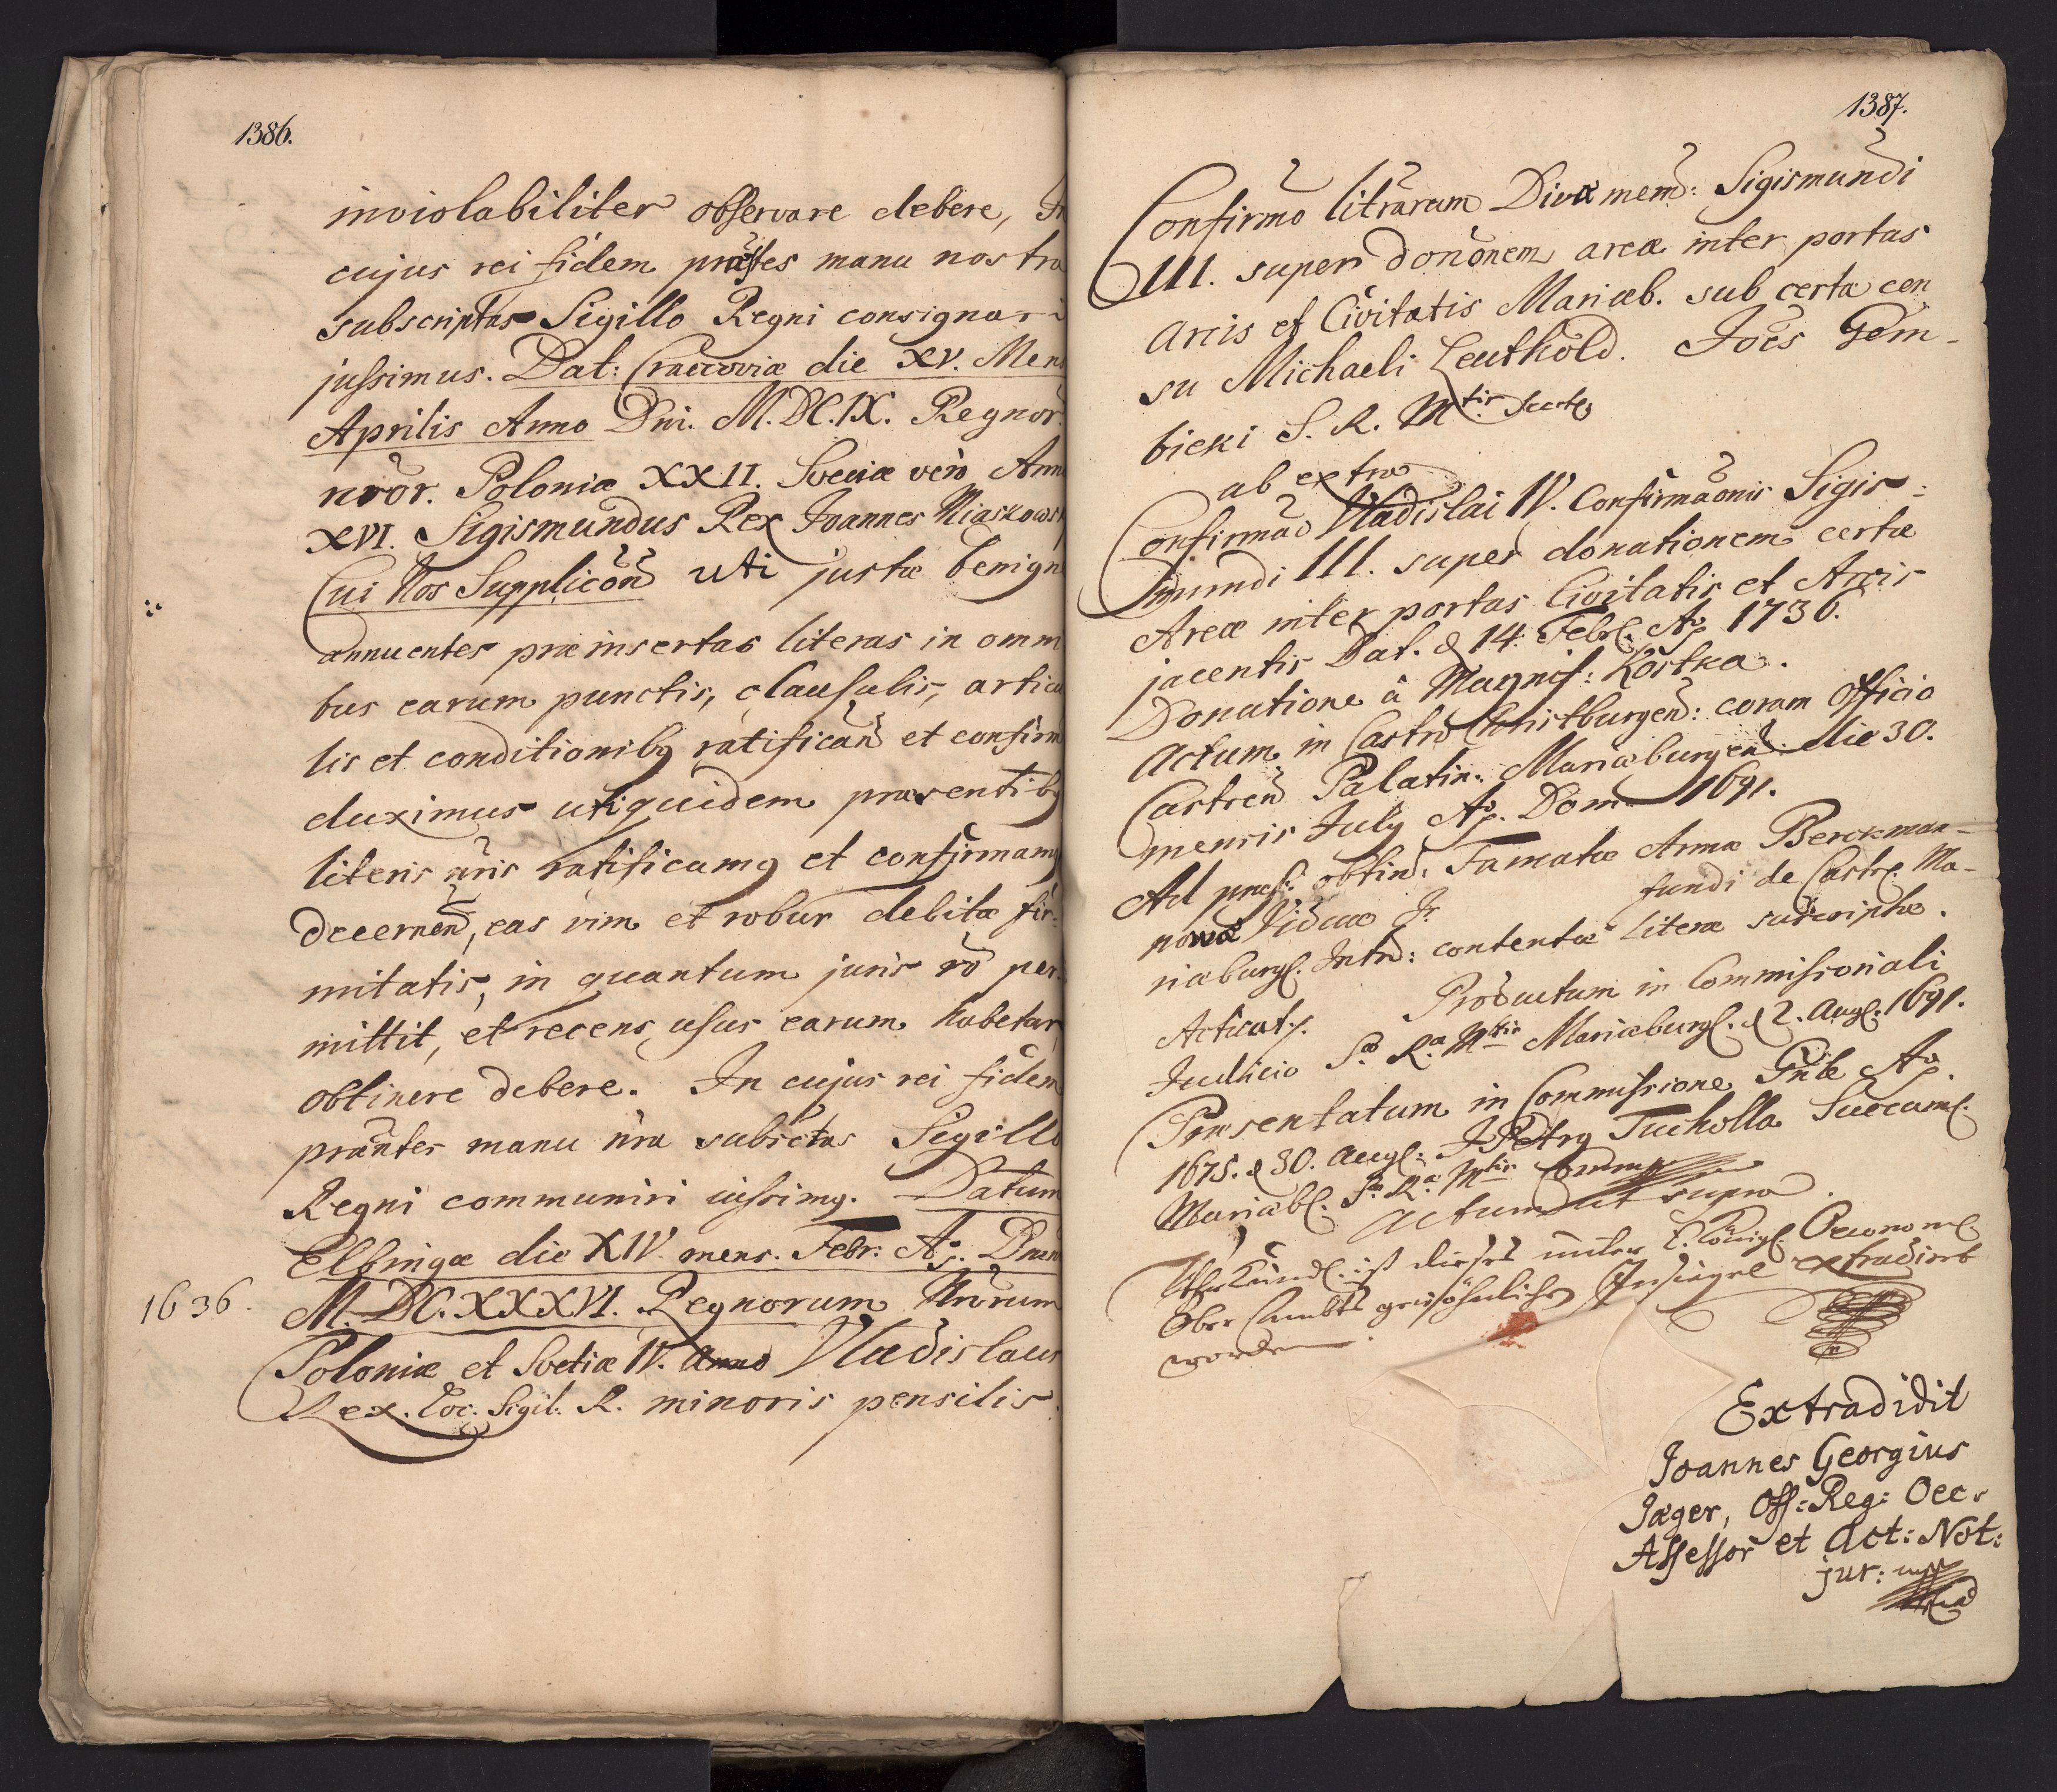 1386.
inviolabiliter observare debere, In
cujus rei fidem præsẽtes manu nostra
subscriptas Sigillo Regni consignari
jussimus. Dat: Craccoviæ die XV. Mens
Aprilis Anno Dni. M.DC.IX. Regnor.
nror. Poloniæ XXII. Sveciæ vero Anno
XVI. Sigismundus Rex Joannes Miaskowsk
Cui Nos Supplicõn uti justæ benigne
annuentes præinsertas literas in omni
bus earum punctis, clausulis, articu
lis et conditionibq ratificand et confirm
duximus uti quidem præsentibq
literis nris ratificamq et confirmamq
decernend, eas vim et robur debitæ fir-
mitatis, in quantum juris ro per-
mittit, et recens usus earum habetur,
obtinere debere. In cujus rei fidem
præntes manu nra subsctas Sigillo
Regni communiri iussimq. Datum
Elbingæ die XIV. mens. Febr: Ao. Dnni
1636. M.DC.XXXVI. Regnorum Nrorum
Poloniæ et Svetiæ IV. Anno Vladislaus
Rex. Loc. Sigil. R. minoris pensilis.
1387.
Confirmo litrarum Divæ mem: Sigismundi
III. super donõnem areæ inter portas
arcis et Civitatis Mariæb. sub certa cen
su Michaeli Leuthold. Joẽs Gem-
bicki S. R. Mtis Secrts
ab extra
Confirmão Vladislai IV. Confirmaõnis Sigis:
mundi III. super donationem certæ
Areæ inter portas Civitatis et Arcis
jacentis Dat. d 14. Febr. Ao 1736.
Donatione à Magnif: Kostka.
Actum in Castro Christburgen: coram Officio
Castren Palatin: Mariæburgen. die 30.
mensis July Ao. Dom 1691.
Ad præs: obtin. Famatæ Annæ Berckman-
nowæ Viduæ Jr. fundi de Castr. Ma-
riæburg. Intro: contentæ literæ suscriptæ.
Acticat. Productum in Commissoriali
Iudicio S.æ R.æ Mtis Mariæburg. d 2. Aug. 1691.
Præsentatum in Commissione Gnle Ao.
1675. d 30. Aug: J Petrq Tucholla Succam.
Mariæb. S.æ R.æ Mtis Comm
Actum ut supra.
Uhrkundl. ist dieses unter E. Königl. Oeconom.
Ober Ambts gewöhnlichen Insiegel extradirt
worden.
Extradidit
Joannes Georgius
Jæger, Off: Reg: Oec.
Assessor et Act: Not:
jur: mpp